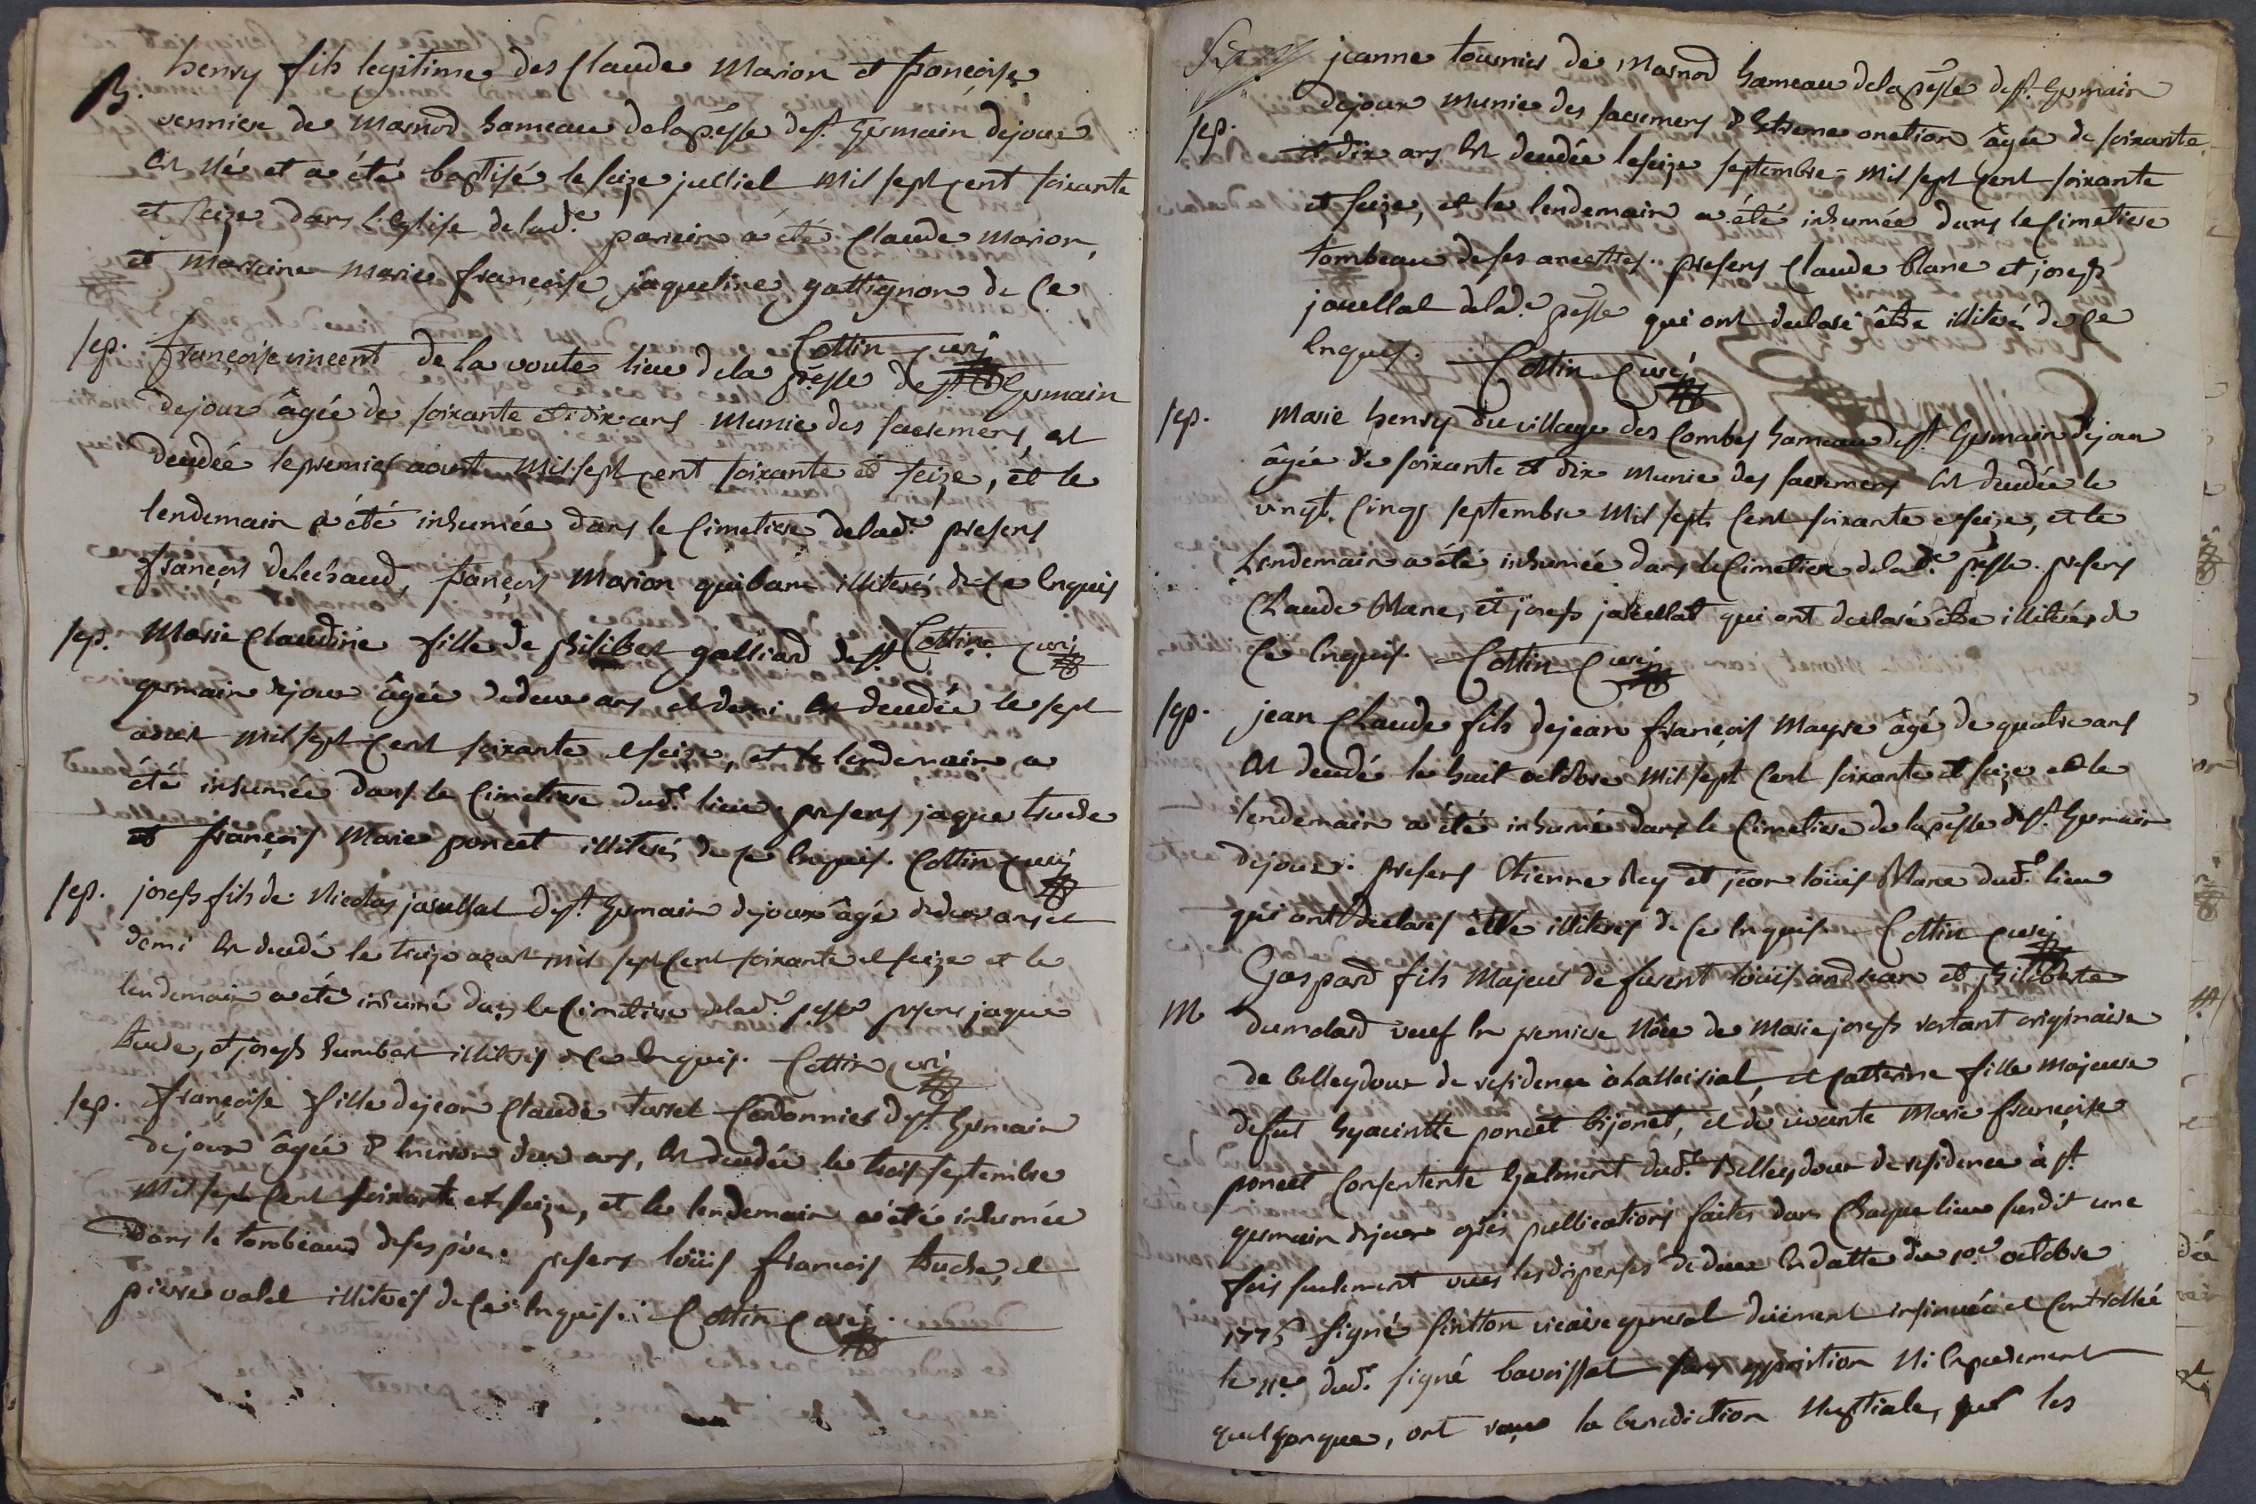 B. henry fils legitime des Claude Marion et françoise
vernniere de Marnod hameau de la p.èsse de st. Germain dejoux
est né et a été baptisé le seize julliel mil sept cent soixante
et seize dans l'eglise de lad.e parrein a été Claude Marion,
et Marreine Marie françoise jaqueline gattignon de ce
Cottin Curé
sep. françoise vincent de la voute lieu de la p.èsse de st. Germain
dejoux âgée de soixante et dix ans munie des sacremens, est
decedée le premier aoust mil sept cent soixante et seize, et le
lendemain a été inhumée dans le Cimetiere de lad.e presens
françois delechaud, françois Marion quiban illiterés de ce enquis
Cottin Curé
sep. Marie Claudine fille de philibert galliard de st.
germain dejoux âgée de deux ans et demi est decedée le sept
aoust mil sept cent soixante et seize, et le lendemain a
été inhumée dans le Cimetiere dud.t lieu. presens jaque truche
et françois Marie poncet illiterés de ce enquis. Cottin Curé
sep. joseph fils de Nicolas javellat de st. Germain dejoux âgé de deux ans et
demi est decedé le treize aoust mil sept cent soixante et seize et le
lendemain a été inhumé dans le Cimetiere de lad.e p.sse presens jaque
truche, et joseph humbert illiterés de ce enquis. Cottin Curé
sep. françoise fille de jean Claude tarret Cordonnier de st. Germain
dejoux âgée d'environ deux ans, est decedée le trois septembre
mil sept cent soixante et seize, et le lendemain a été inhumée
dans le tombeau de ses pères. presens loüis françois truche, et
pierre valet illiterés de ce enquis. Cottin Curé.
jeanne tournier de Marnod hameau de la p.èsse de st. Germain
sep. dejoux munie des sacremens d'Extreme onction âgée de soixante
et dix ans est decedée le seize septembre mil sept cent soixante
et seize, et le lendemain a été inhumée dans le Cimetiere
tombeau de ses ancettres. presens Claude blanc et joseph
javellat de lad.e p.èsse qui ont declaré être illiterés de ce
enquis. Cottin Curé
sep. Marie henry du village des Combes hameau de st. Germain dejoux
âgée de soixante et dix munie des sacremens est decedée le
vingt cinq septembre mil sept cent soixante et seize, et le
Lendemain a été inhumée dans le Cimetiere de lad.e p.èsse. presens
Claude Blanc, et joseph javellat qui ont declaré être illiterés de
ce enquis. Cottin Curé
sep. jean Claude fils de jean françois mayre âgé de quatre ans
est decedé le huit octobre mil sept cent soixante et seize et le
lendemain a été inhumé dans le Cimetiere de la p.èsse de st. Germain
dejoux. presens Etienne Rey et jean loüis Blanc dud.t lieu
qui ont declarés être illiterés de ce enquis. Cottin Curé
Gaspard fils majeur de furent loüis andrean et philiberte
M dumolard veuf en premiere Nôce de Marie joseph vertant originaire
de belleydoux de residence à challeisial, et Catherine fille majeure
de fut hyacintte poncet bijonet, et de vivante Marie françoise
poncet consentente Egalment dud.t Belleydoux de residence à st.
germain dejoux après publications faites dans Chaque lieu susdit une
fois seulement vües les dispenses de deux en datte du 10.e octobre
1775 signé sintton vicaire general düement insinuée et Controllée
le 11.e dud.t signé bavoissat sans opposition ni empechement
quelqonque, ont reçu la benediction Nuptiale, les